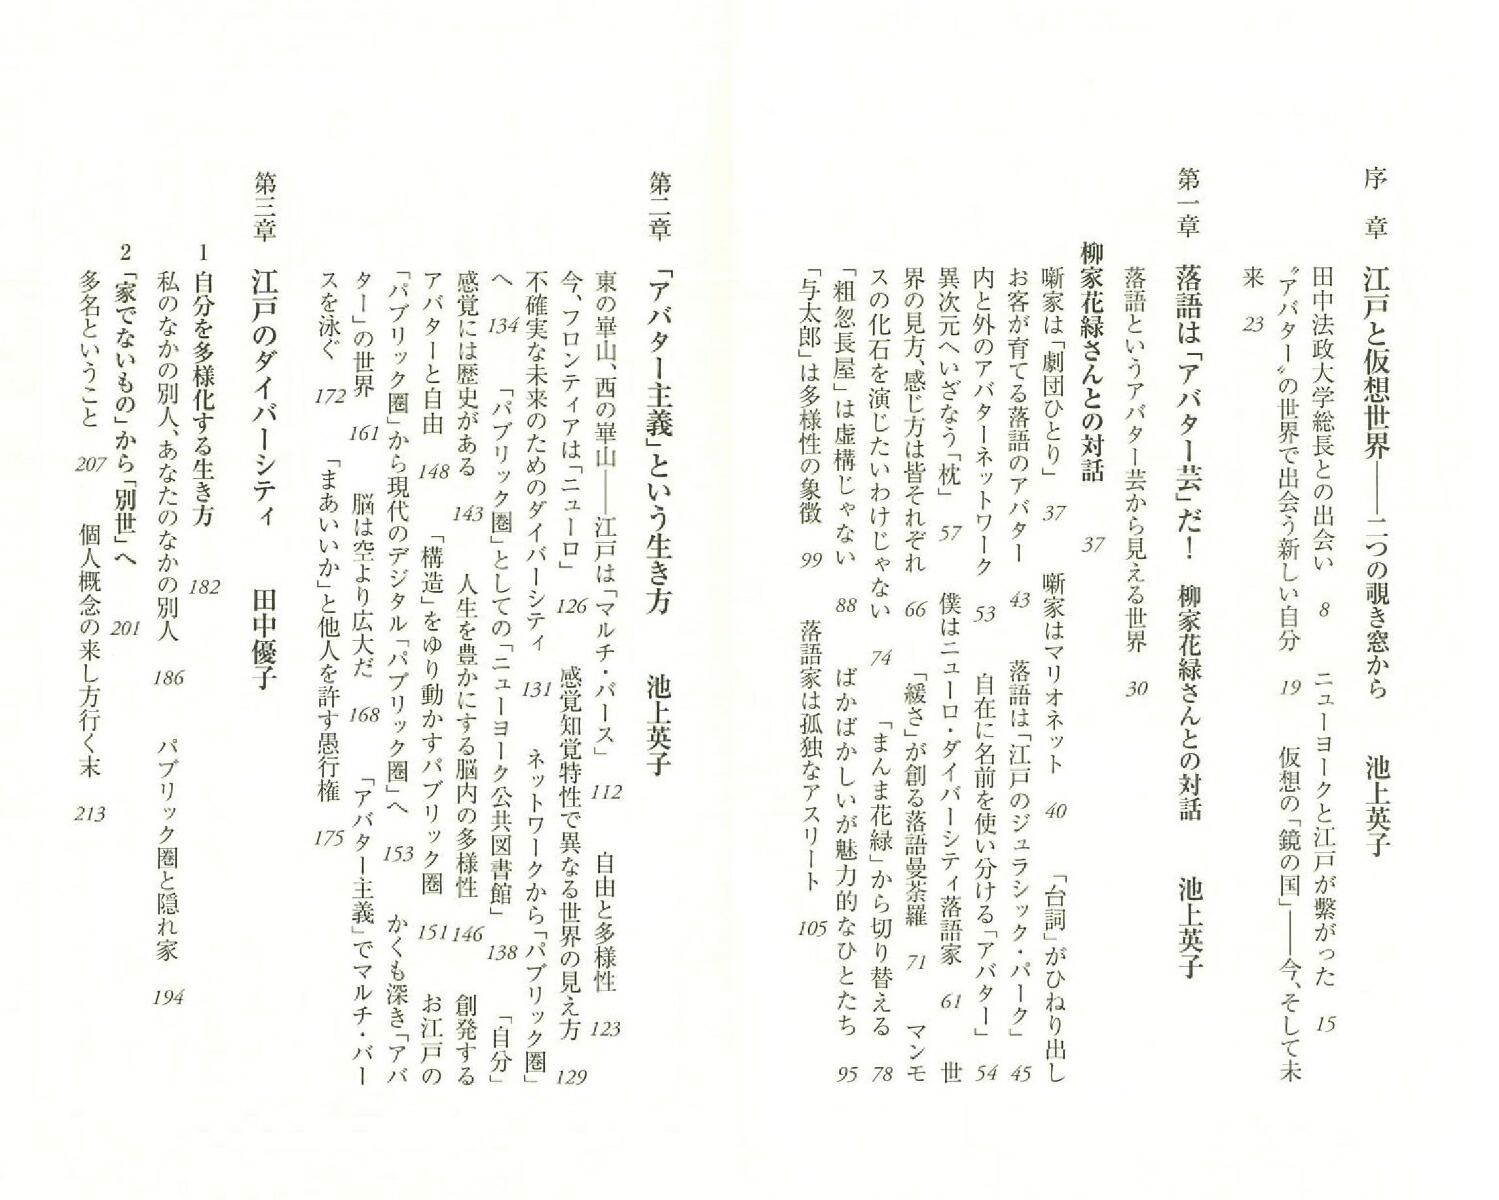 序　章　江戸と仮想世界――二つの覗き窓から　　池上英子
田中法政大学総長との出会い　8　　ニューヨークと江戸が繋がった　15
〝アバター〟の世界で出会う新しい自分　19　　仮想の「鏡の国」――今、そして未
来　23
第一章　落語は「アバター芸」だ！　柳家花緑さんとの対話　　池上英子
落語というアバター芸から見える世界　30
柳家花緑さんとの対話　37
噺家は「劇団ひとり」　37　　噺家はマリオネット　40　　「台詞」がひねり出し
お客が育てる落語のアバター　43　　落語は「江戸のジュラシック・パーク」　45
内と外のアバターネットワーク　53　　自在に名前を使い分ける「アバター」　54
異次元へいざなう「枕」　57　　僕はニューロ・ダイバーシティ落語家　61　　世
界の見方、感じ方は皆それぞれ　66　　「緩さ」が創る落語曼荼羅　71　　マンモ
スの化石を演じたいわけじゃない　74　　「まんま花緑」から切り替える　78
「粗忽長屋」は虚構じゃない　88　　ばかばかしいが魅力的なひとたち　95
「与太郎」は多様性の象徴　99　　落語家は孤独なアスリート　105
第二章　「アバター主義」という生き方　　池上英子
東の崋山、西の崋山――江戸は「マルチ・バース」　112　　自由と多様性　123
今、フロンティアは「ニューロ」　126　　感覚知覚特性で異なる世界の見え方　129
不確実な未来のためのダイバーシティ　131　　ネットワークから「パブリック圏」
へ　134　　「パブリック圏」としての「ニューヨーク公共図書館」　138　　「自分」
感覚には歴史がある　143　　人生を豊かにする脳内の多様性　146　　創発する
アバターと自由　148　　「構造」をゆり動かすパブリック圏　151　　お江戸の
「パブリック圏」から現代のデジタル「パブリック圏」へ　153　　かくも深き「アバ
ター」の世界　161　　脳は空より広大だ　168　　「アバター主義」でマルチ・バー
スを泳ぐ　172　　「まあいいか」と他人を許す愚行権　175
第三章　江戸のダイバーシティ　　田中優子
1　自分を多様化する生き方　182
私のなかの別人、あなたのなかの別人　186　　パブリック圏と隠れ家　194
2　「家でないもの」から「別世」へ　201
多名ということ　207　　個人概念の来し方行く末　213